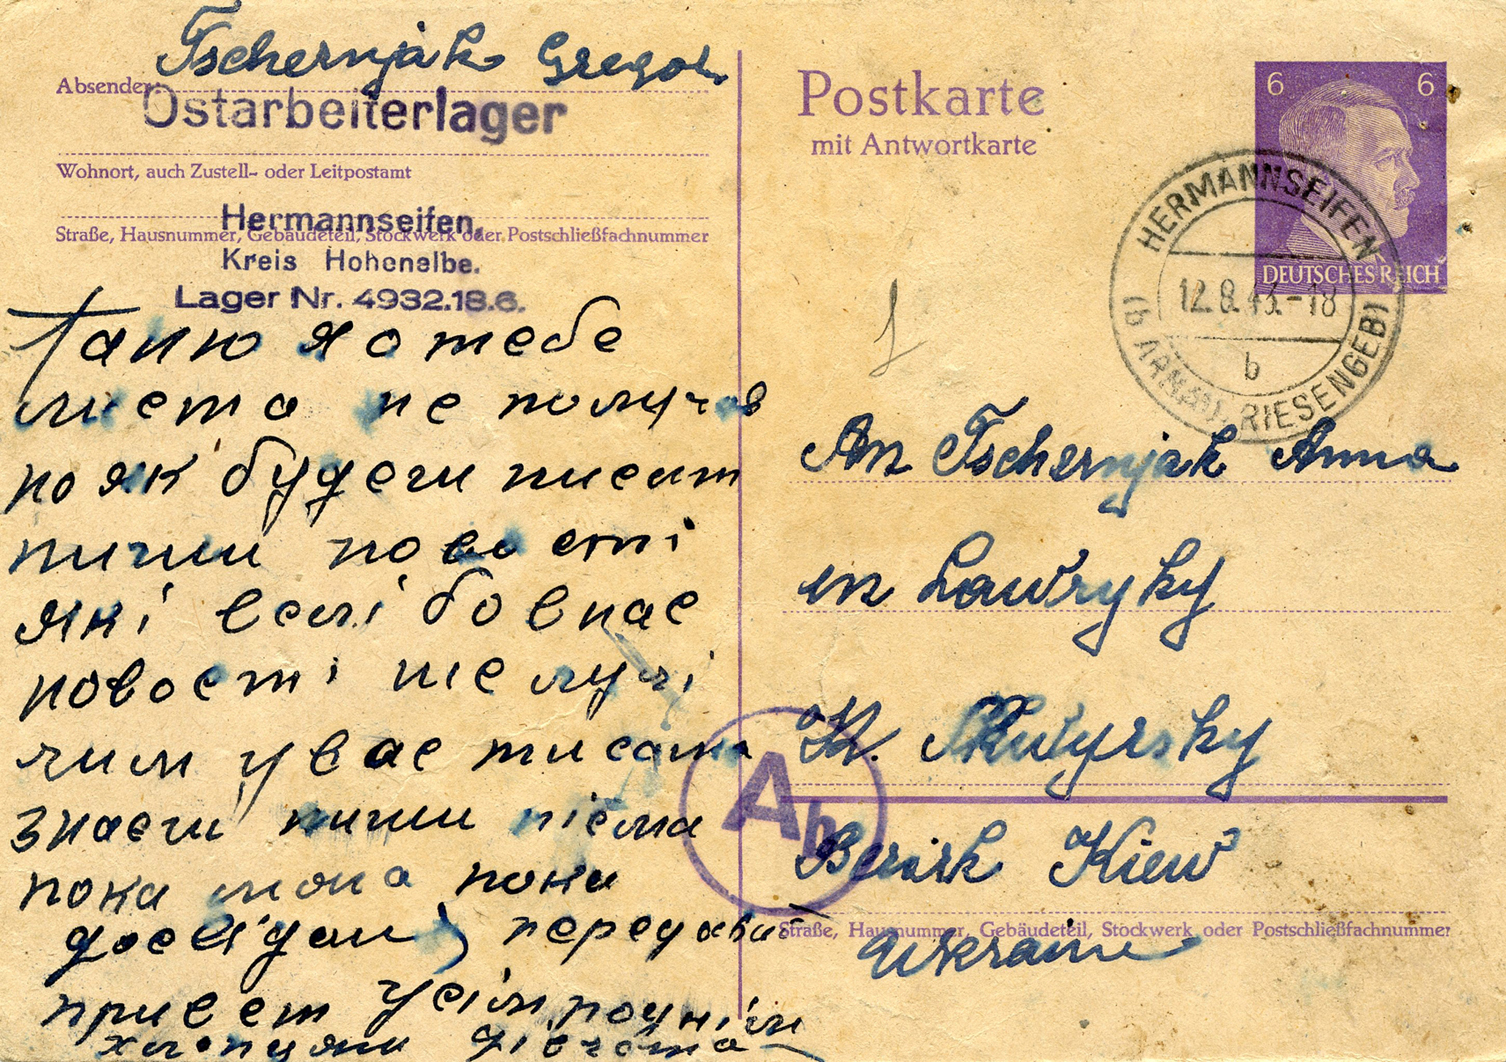 Tschernjak Gregor
Absender:
Ostarbeiterlager
Wohnort, auch Zustell- oder Leitpostamt
Hermannseifen,
Straße, Hausnummer, Gebäudeteil, Stockwerk oder Postschließfachnummer
Kreis Hohenelbe.
Lager Nr. 4932.18.6.
Таню я о тебе
листа не получав
но як будеш писат
пиши новості
які всі бо в нас
новості
чим у вас писат
знаєш пиши пісма
пока мона поки
досвідан передавай
привет усім родн
хлопцям дівчата
Postkarte
mit Antwortkarte
6 6
DEUTSCHES REICH
HERMANNSEIFEN
12.8.43.-18
b
RIESENGEB)
An Tschernjak Anna
in Lawryky
K. Skwyrsky
Ab
Besirk Kiew
Straße, Hausnummer, Gebäudeteil, Stockwerk oder Postschließfachnummer
Ukraine